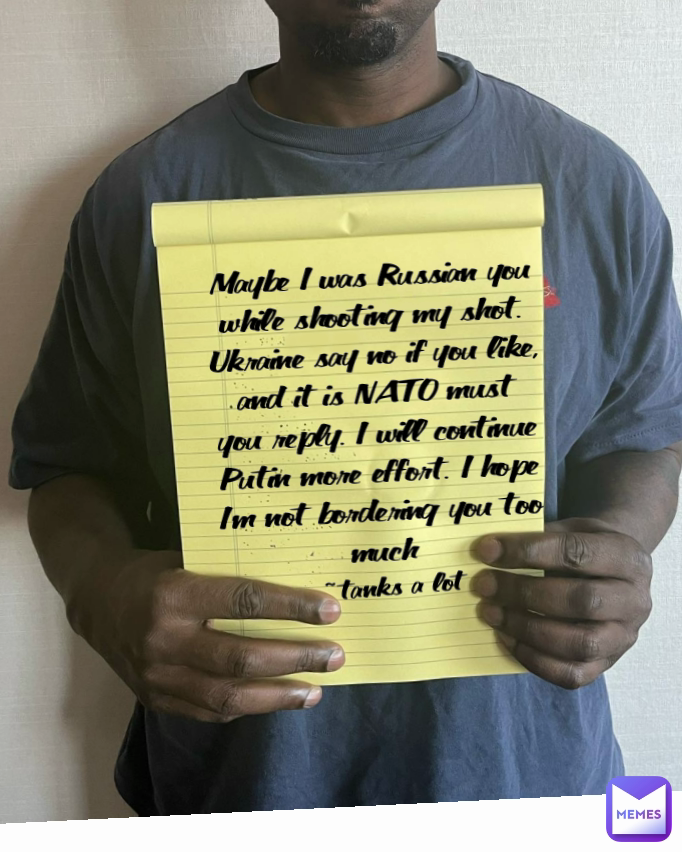 Maybe I was Russian you
while shooting my shot.
Ukraine say no if you like,
and it is NATO must
you reply. I will continue
Putin more effort. I hope
Im not bordering you too
much
~tanks a lot
MEMES